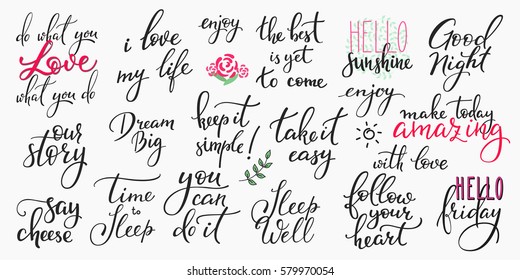 do what you
Love
what you do
i love
my life
enjoy
the best
is yet
to come
HELLO
sunshine
Good
Night
our
story
Dream
Big
keep it
simple!
take it
easy
enjoy
make today
amazing
with love
say
cheese
time
to
Sleep
you
can
do it
Sleep
Well
follow
your
heart
HELLO
friday
shutterstock.com · 579970054